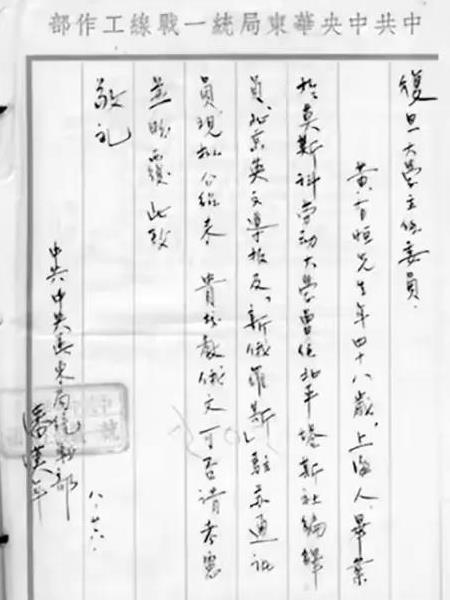 中共中央華東局統一戰線工作部
復旦大學主任委員：
黄有恒先生年四十八歲，上海人，畢業
於莫斯科劳动大學曾任北平塔斯社編譯
員，北京英文導报及「新俄羅斯」駐苏通訊
員現拟介紹来 貴校教俄文可否請考慮
並盼覆 此致
敬礼
中共中央華東局統戰部
潘漢年
八.廿六.